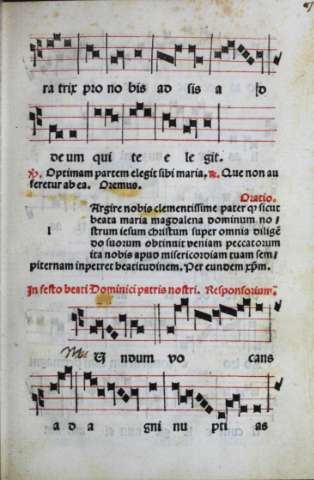 ra trix pro no bis ad sis a d
de um qui te e le git.
℣. Optimam partem elegit sibi maria. ℟. Que non au
feretur ab ea. Oremus.
Oratio.
lArgire nobis clementissime pater ꝙ sicut
beata maria magdalena dominum no/
strum iesum christum super omnia diligẽ
do suorum obtinuit veniam peccatorum
ita nobis apud misericordiam tuam sem/
piternam inpetret beatitudinem. Per eundem xp̄m.
In festo beati Dominici patris nostri. Responsorium.
Mu Undum vo cans
a d a gni nu pti as